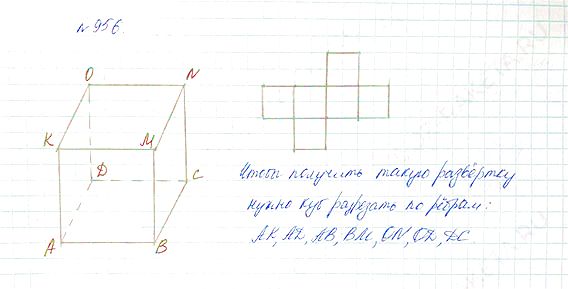 №956.
O
N
K
M
D
C
A
B
Чтобы получить такую развёртку
нужно куб разрезать по рёбрам:
AK, AD, AB, BM, ON, OD, DC